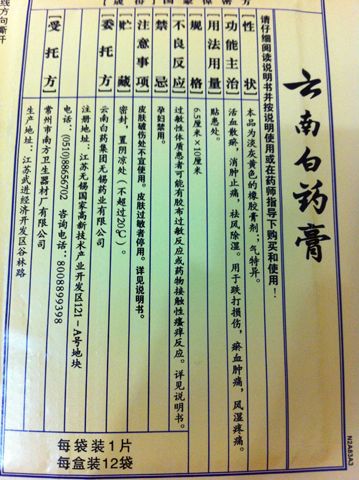 线方向撕开
云南白药膏
请仔细阅读说明书并按说明使用或在药师指导下购买和使用！
【性 状】本品为淡灰黄色的橡胶膏剂；气特异。
【功能主治】活血散瘀，消肿止痛，祛风除湿。用于跌打损伤，瘀血肿痛，风湿疼痛。
【用法用量】贴患处。
【规 格】6.5厘米×10厘米
【不良反应】过敏性体质患者可能有胶布过敏反应或药物接触性瘙痒反应。详见说明书。
【禁 忌】孕妇禁用。
【注意事项】皮肤破伤处不宜使用。皮肤过敏者停用。详见说明书。
【贮 藏】密封，置阴凉处（不超过20℃）。
【委托方】云南白药集团无锡药业有限公司
注册地址：江苏无锡国家高新技术产业开发区121-A号地块
电话：(0510)88656702 咨询电话：8008899398
【受托方】常州市南方卫生器材厂有限公司
生产地址：江苏武进经济开发区谷林路
每袋装1片
每盒装12袋
N2A83A3